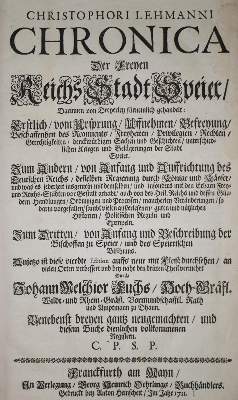 CHRISTOPHORI LEHMANNI
CHRONICA
Der Freyen
Reichs Stadt Speier/
Darinnen von dreyerley fürnemlich gehandelt:
Erstlich/ vom Ursprung/ Auffnehmen/ Befreyung/
Beschaffenheit des Regiments/ Freyheiten/ Privilegien/ Rechten/
Gerechtigkeiten/ denckwürdigen Sachen und Geschichten/
Kriegen und Belägerungen der Stadt
Speier.
Zum Andern/ von Anfang und Auffrichtung des
Teutschen Reichs/ desselben Regierung durch Könige und Käyser/
Historien/ Politischen Reguln und
Zum Dritten/ von Anfang und Beschreibung der
Bischoffen zu Speier/ und des Speirischen
Bisthums.
Anjetzo ist diese vierdte Edition auffs neue mit Fleiß durchsehen/ an
vielen Orten verbessert und
Durch
Johann Melchior Fuchs/ Hoch-Gräfl.
Wild- und Rhein-Gräfl. Vormundschafftl. Rath
und Amptmann zu Dhaun.
Nebenst dreyen gantz neugemachten/ und
diesem Buche dienlichen vollkommenen
Registern.
C. P. S. P.
Franckfurth am Mayn/
In Verlegung/ Georg Heinrich Oehrlings/ Buchhändlers.
Gedruckt bey Anton Heinscheit/ Im Jahr 1711.